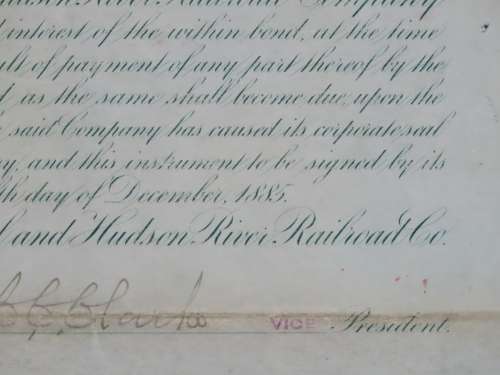 Hudson River Railroad Company
interest of the within bond, at the time
of payment of any part thereof by the
as the same shall become due, upon the
said Company has caused its corporate seal
and this instrument to be signed by its
th day of December, 1885.
and Hudson River Railroad Co.
C. Clark
VICE President.